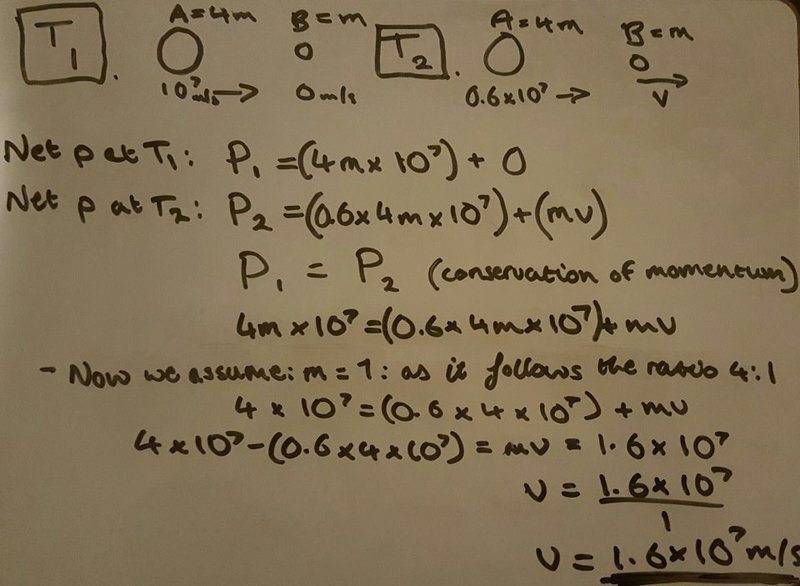 T1. A=4m B=m T2. A=4m B=m
10⁷m/s → 0m/s 0.6x10⁷ → → V
Net p at T1: P1 =(4m x 10⁷) + 0
Net p at T2: P2 =(0.6 x 4m x 10⁷)+(mv)
P1 = P2 (conservation of momentum)
4m x 10⁷=(0.6 x 4m x 10⁷)+mv
- Now we assume: m = 1: as it follows the ratio 4:1
4 x 10⁷=(0.6 x 4 x 10⁷) + mv
4 x 10⁷-(0.6 x 4 x 10⁷) = mv = 1.6 x 10⁷
v = 1.6x 10⁷
1
v = 1.6x10⁷ m/s